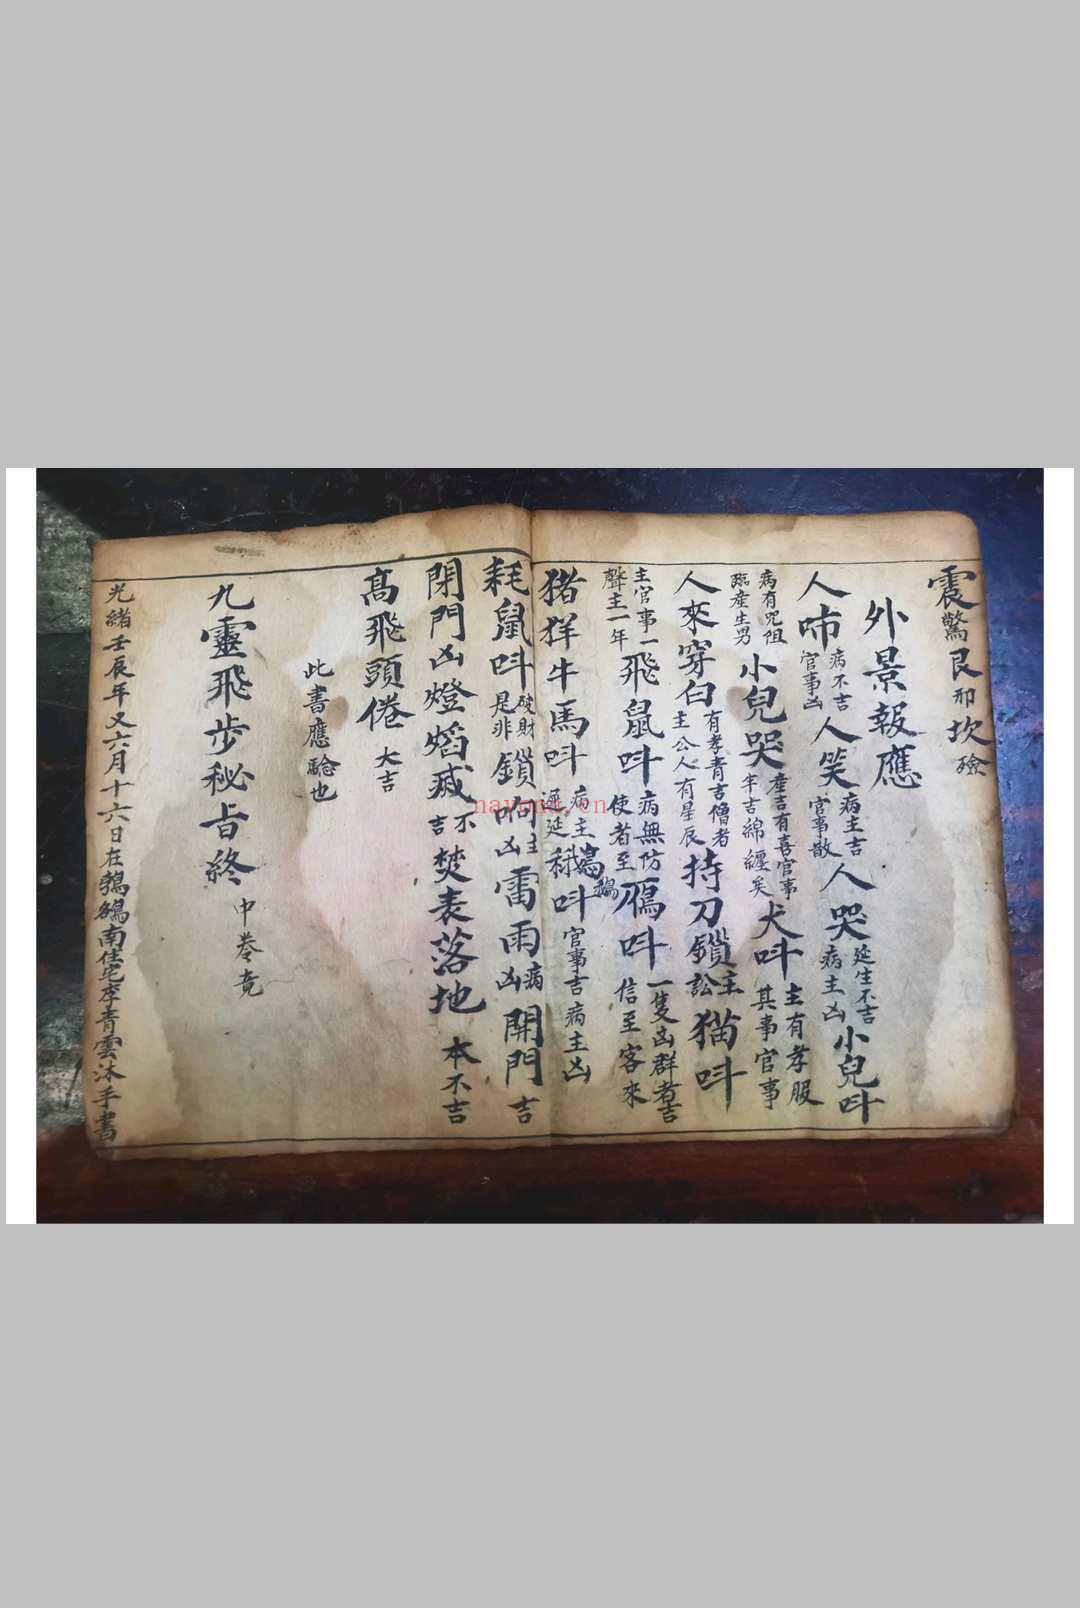 震驚艮刑坎險
外景報應
人啼病不吉官事凶人笑病主吉官事散人哭延生不吉病主凶小兒呌
病有咒咀臨產生男小兒哭產吉有喜官事半吉綿纏矣犬呌主有孝服其事官事
人來穿白有孝青吉僧者主公人有星辰持刀鎖主訟猫呌
主官事一聲主一年飛鼠呌病無防使者至鴈呌一隻凶群者吉信至客來
猪羊牛馬呌病主遲延鵝呌官事吉病主凶
耗鼠呌破財是非鎖响主凶雷雨病凶開門吉
閉門凶燈熖滅不吉焚表落地本不吉
高飛頭倦大吉
此書應驗也
九靈飛步秘旨終中卷竟
光緒壬辰年又六月十六日在鵓鴿南住宅李青雲沐手書
nayona.cn